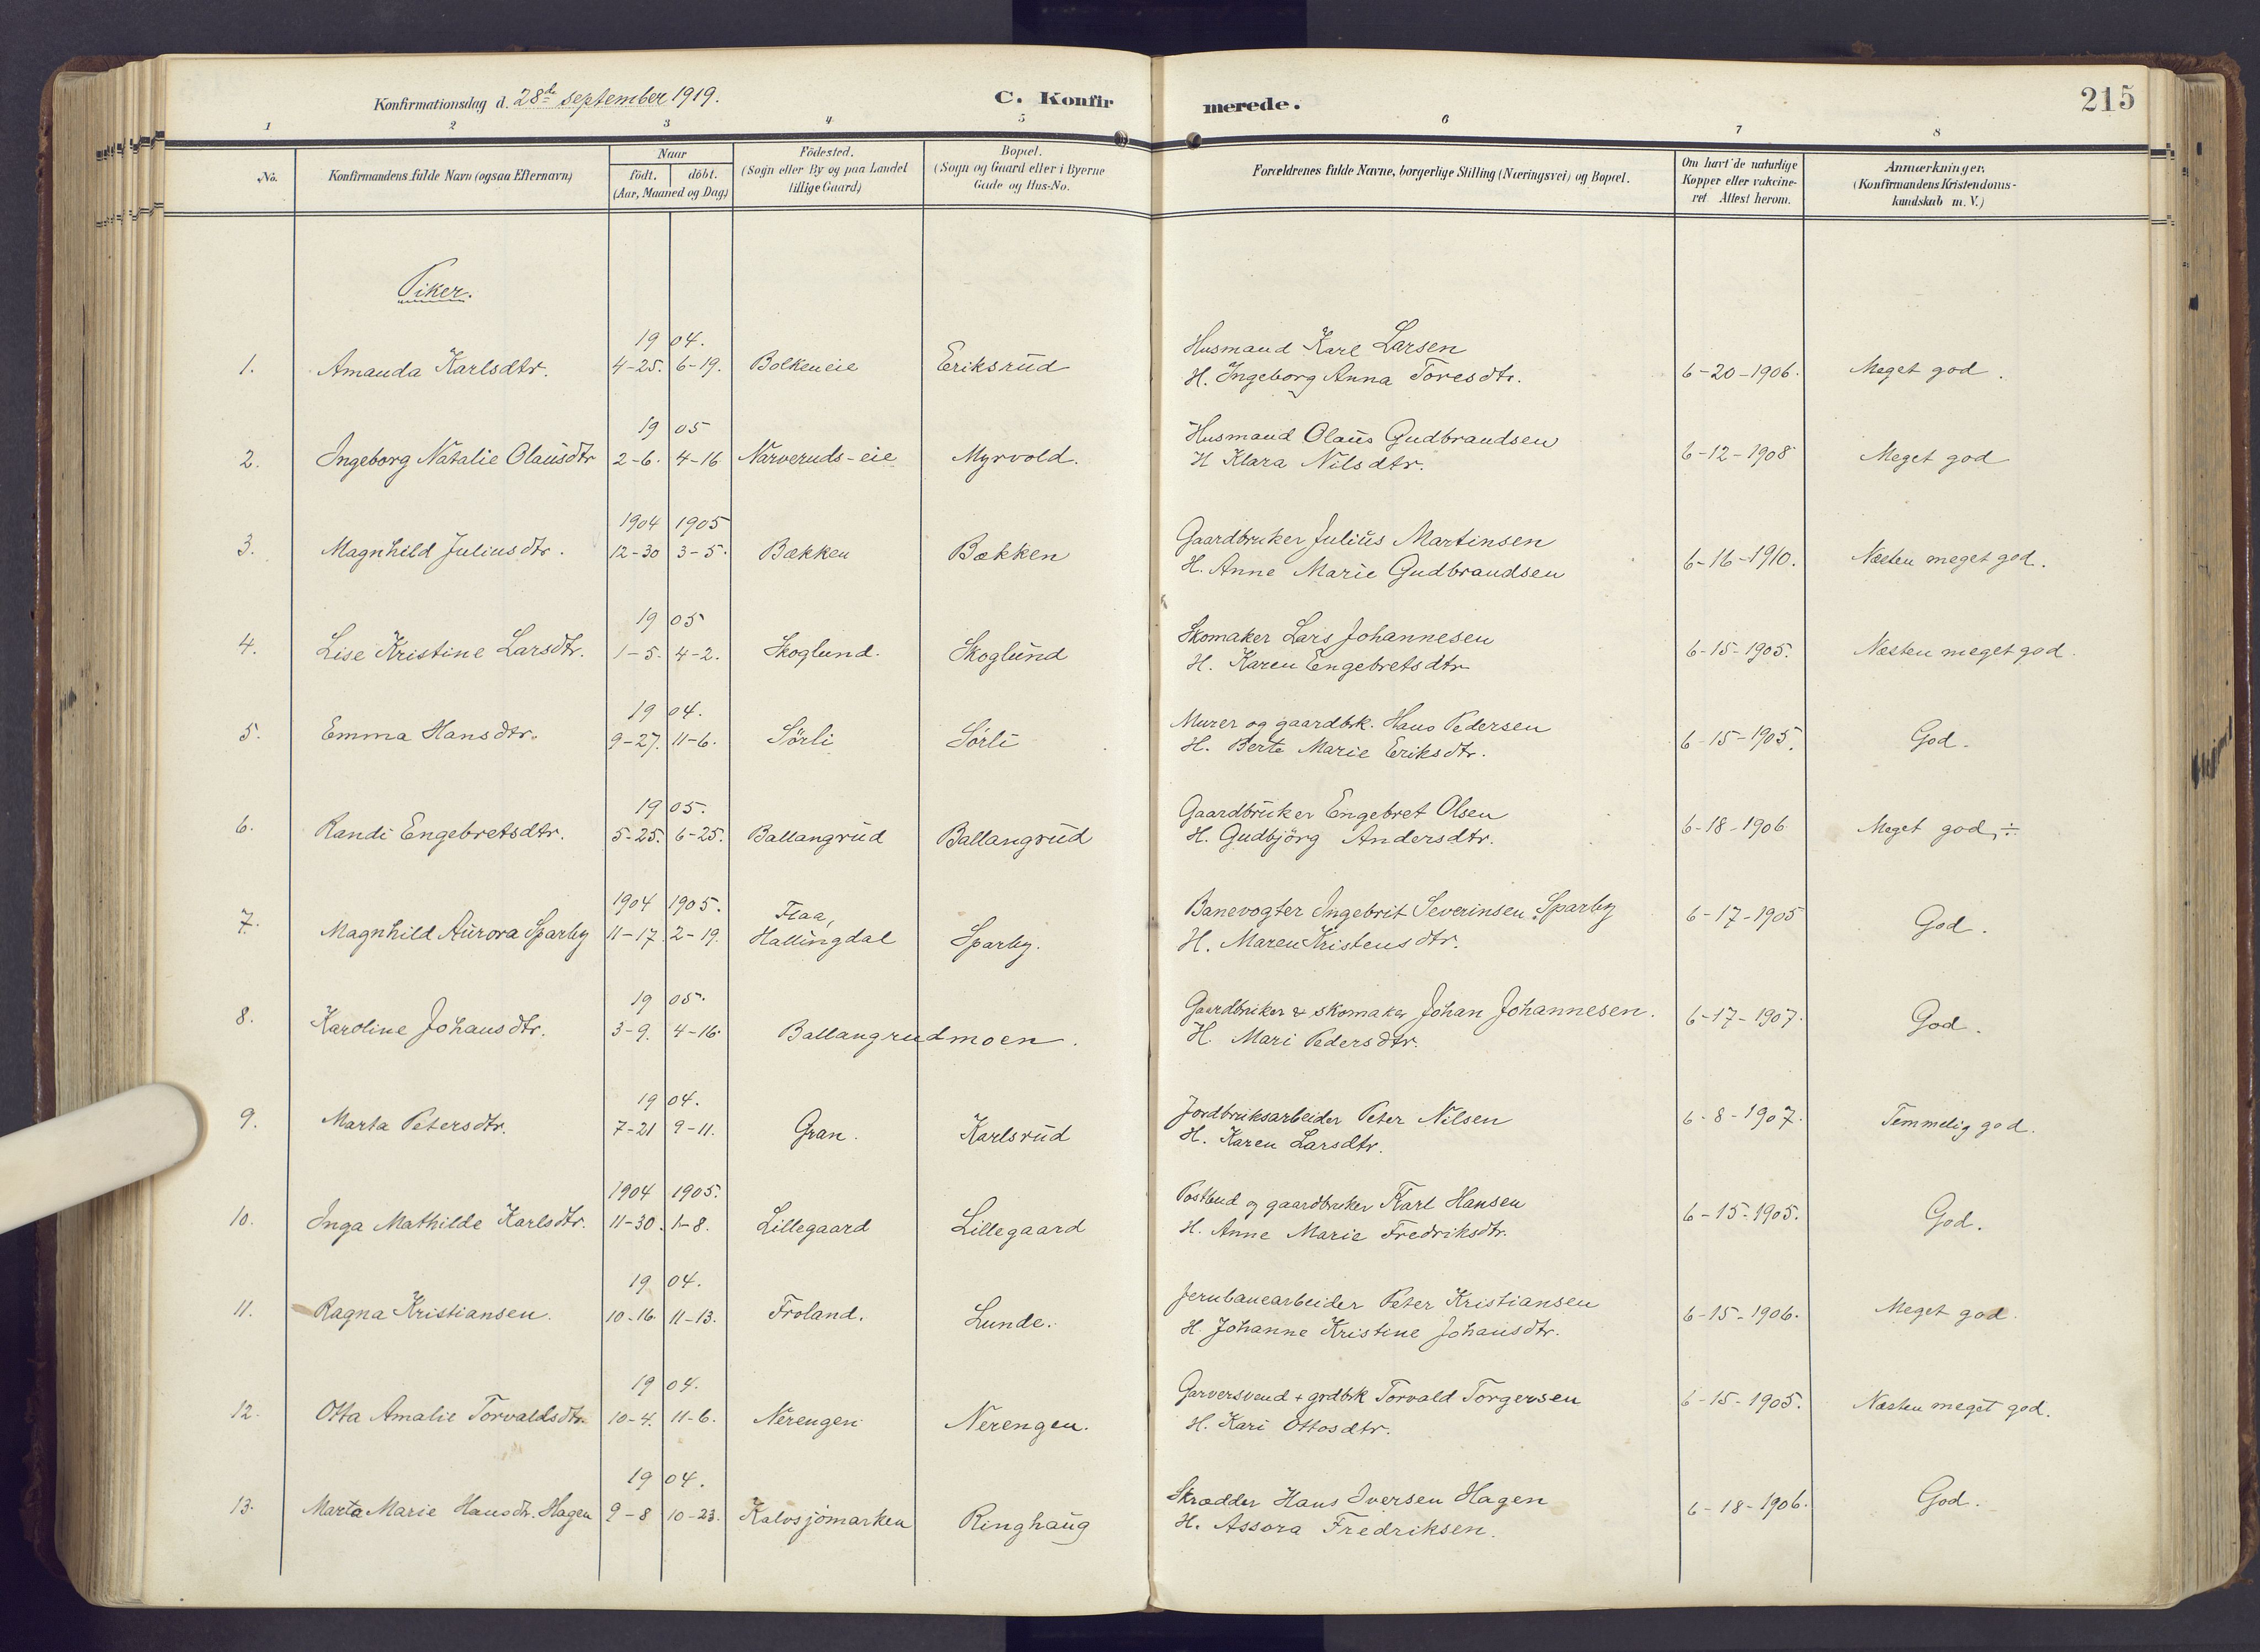 Konfirmationsdag d. 28de september 1919.
C. Konfirmerede.
215
1 2 3 4 5 6 7 8
No.
Konfirmandens fulde Navn (ogsaa Efternavn)
Naar
födt. döbt.
(Aar, Maaned og Dag)
Födested.
(Sogn eller By og paa Landet
tillige Gaard)
Bopæl.
(Sogn og Gaard eller i Byerne
Gade og Hus-No.
Forældrenes fulde Navne, borgerlige Stilling (Næringsvei) og Bopæl.
Om havt de naturlige
Kopper eller vakcine-
ret. Attest herom.
Anmærkninger.
(Konfirmandens Kristendoms-
kundskab m. V.)
Piker.
19 04.
Husmand Karl Larsen
1. Amanda Karlsdtr. 4-25. 6-19. Bolkeneie Eriksrud H. Ingeborg Anna Toresdtr. 6-20-1906. Meget god.
19 05
Husmand Olaus Gudbrandsen
2. Ingeborg Natalie Olausdtr 2-6. 4-16 Narveruds-eie Myrvold. H Klara Nilsdtr. 6-12-1908 Meget god
1904 1905
Gaardbruker Julius Martinsen
3. Magnhild Juliusdtr. 12-30 3-5. Bækken Bækken H. Anne Marie Gudbrandsen 6-16-1910. Næsten meget god.
19 05
Skomaker Lars Johannesen
4. Lise Kristine Larsdtr. 1-5. 4-2. Skoglund. Skoglund H. Karen Engebretsdtr 6-15-1905. Næsten meget god.
19 04.
Murer og gaardbk. Hans Pedersen
5. Emma Hansdtr. 9-27. 11-6. Sörli Sörli H. Berte Marie Eriksdtr. 6-15-1905. God.
19 05.
Gaardbruker Engebret Olsen
6. Randi Engebretsdtr. 5-25. 6-25. Ballangrud Ballangrud H. Gudbjörg Andersdtr. 6-18-1906 Meget god, ÷
1904 1905. Flaa,
Banevogter Ingebrit Severinsen Sparby
7. Magnhild Aurora Sparby 11-17. 2-19. Hallingdal Sparby. H. Maren Kristensdtr. 6-17-1905 God.
19 05.
Gaardbruker & skomaker Johan Johannesen.
8. Karoline Johansdtr. 3-9. 4-16. Ballangrudmoen. H. Mari Pedersdtr. 6-17-1907. God.
19 04.
Jordbruksarbeider Peter Nilsen
9. Marta Petersdtr. 7-21 9-11. Gran. Karlsrud H. Karen Larsdtr. 6-8-1907. Temmelig god.
1904 1905.
Postbud og gaardbruker Karl Hansen
10. Inga Mathilde Karlsdtr. 11-30. 1-8. Lillegaard Lillegaard H. Anne Marie Fredriksdtr. 6-15-1905. God.
19 04.
Jernbanearbeider Peter Kristiansen
11. Ragna Kristiansen. 10-16. 11-13. Froland. Lunde. H. Johanne Kristine Johansdtr. 6-15-1906. Meget god.
19 04.
Garversvend + grdbk Torvald Torgersen
12. Otta Amalie Torvaldsdtr. 10-4. 11-6. Nerengen Nerengen. H. Kari Ottosdtr. 6-15-1905. Næsten meget god.
19 04.
Skrædder Hans Iversen Hagen
13. Marta Marie Hansdtr. Hagen 9-8 10-23. Kalvsjömarken Ringhaug H. Assora Fredriksen. 6-18-1906. God.